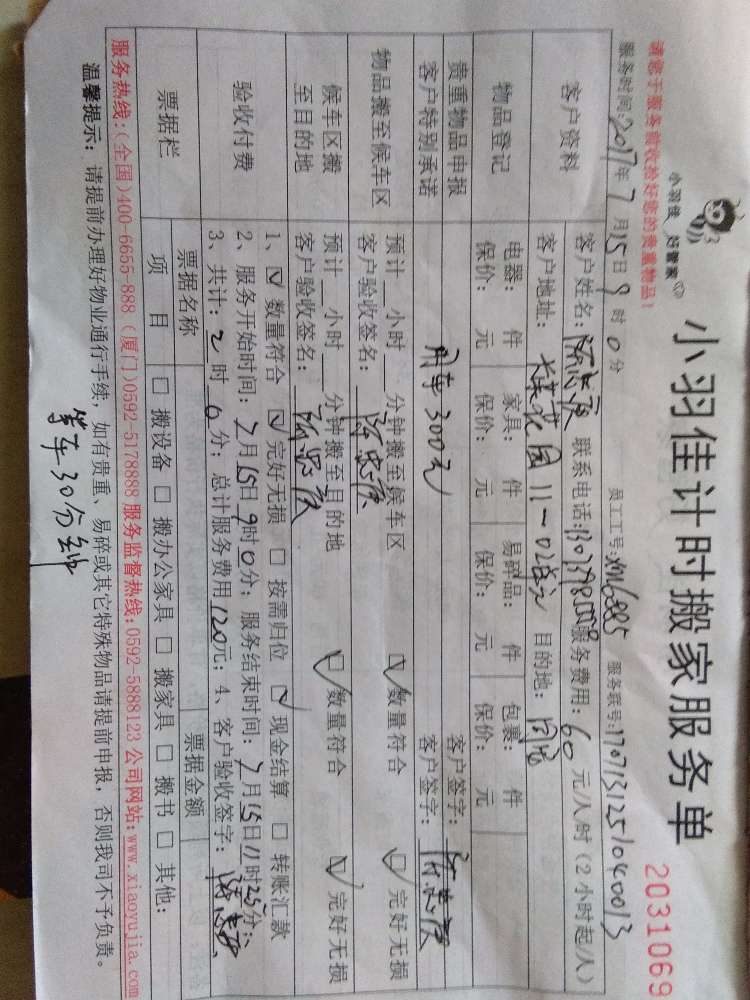 小羽佳 好管家
小羽佳计时搬家服务单
2031069
请您于服务前收拾好您的贵重物品!
服务时间:2017年7月15日9时0分 员工工号:XM6885 服务联号:1707131251040013
客户资料
客户姓名: 联系电话: 服务费用:60元/人/时(2小时起/人)
客户地址: 花园11-02 目的地:
物品登记
电器: 件 家具: 件 易碎品: 件 包裹: 件
保价: 元 保价: 元 保价: 元 保价: 元
贵重物品申报 客户签字:
客户特别承诺 用车300元 客户签字:
物品搬至候车区
预计__小时__分钟搬至候车区 ☑数量符合 ☑完好无损
客户验收签名:
候车区搬至目的地
预计__小时__分钟搬至目的地 ☑数量符合 ☑完好无损
客户验收签名:
验收付费
1、☑数量符合 ☑完好无损 □按需归位 ☑现金结算 □转账汇款
2、服务开始时间:7月15日9时0分;服务结束时间:7月15日11时25分;
3、共计:2时0分;总计服务费用120元;4、客户验收签字:
票据栏
票据名称 票据金额
项目 □搬设备 □搬办公家具 □搬家具 □搬书 □其他:
服务热线:(全国)400-6655-888 (厦门)0592-5178888 服务监督热线:0592-5888123 公司网站:www.xiaoyujia.com
温馨提示:请提前办理好物业通行手续,如有贵重、易碎或其它特殊物品请提前申报,否则我司不予负责。
等车30分钟